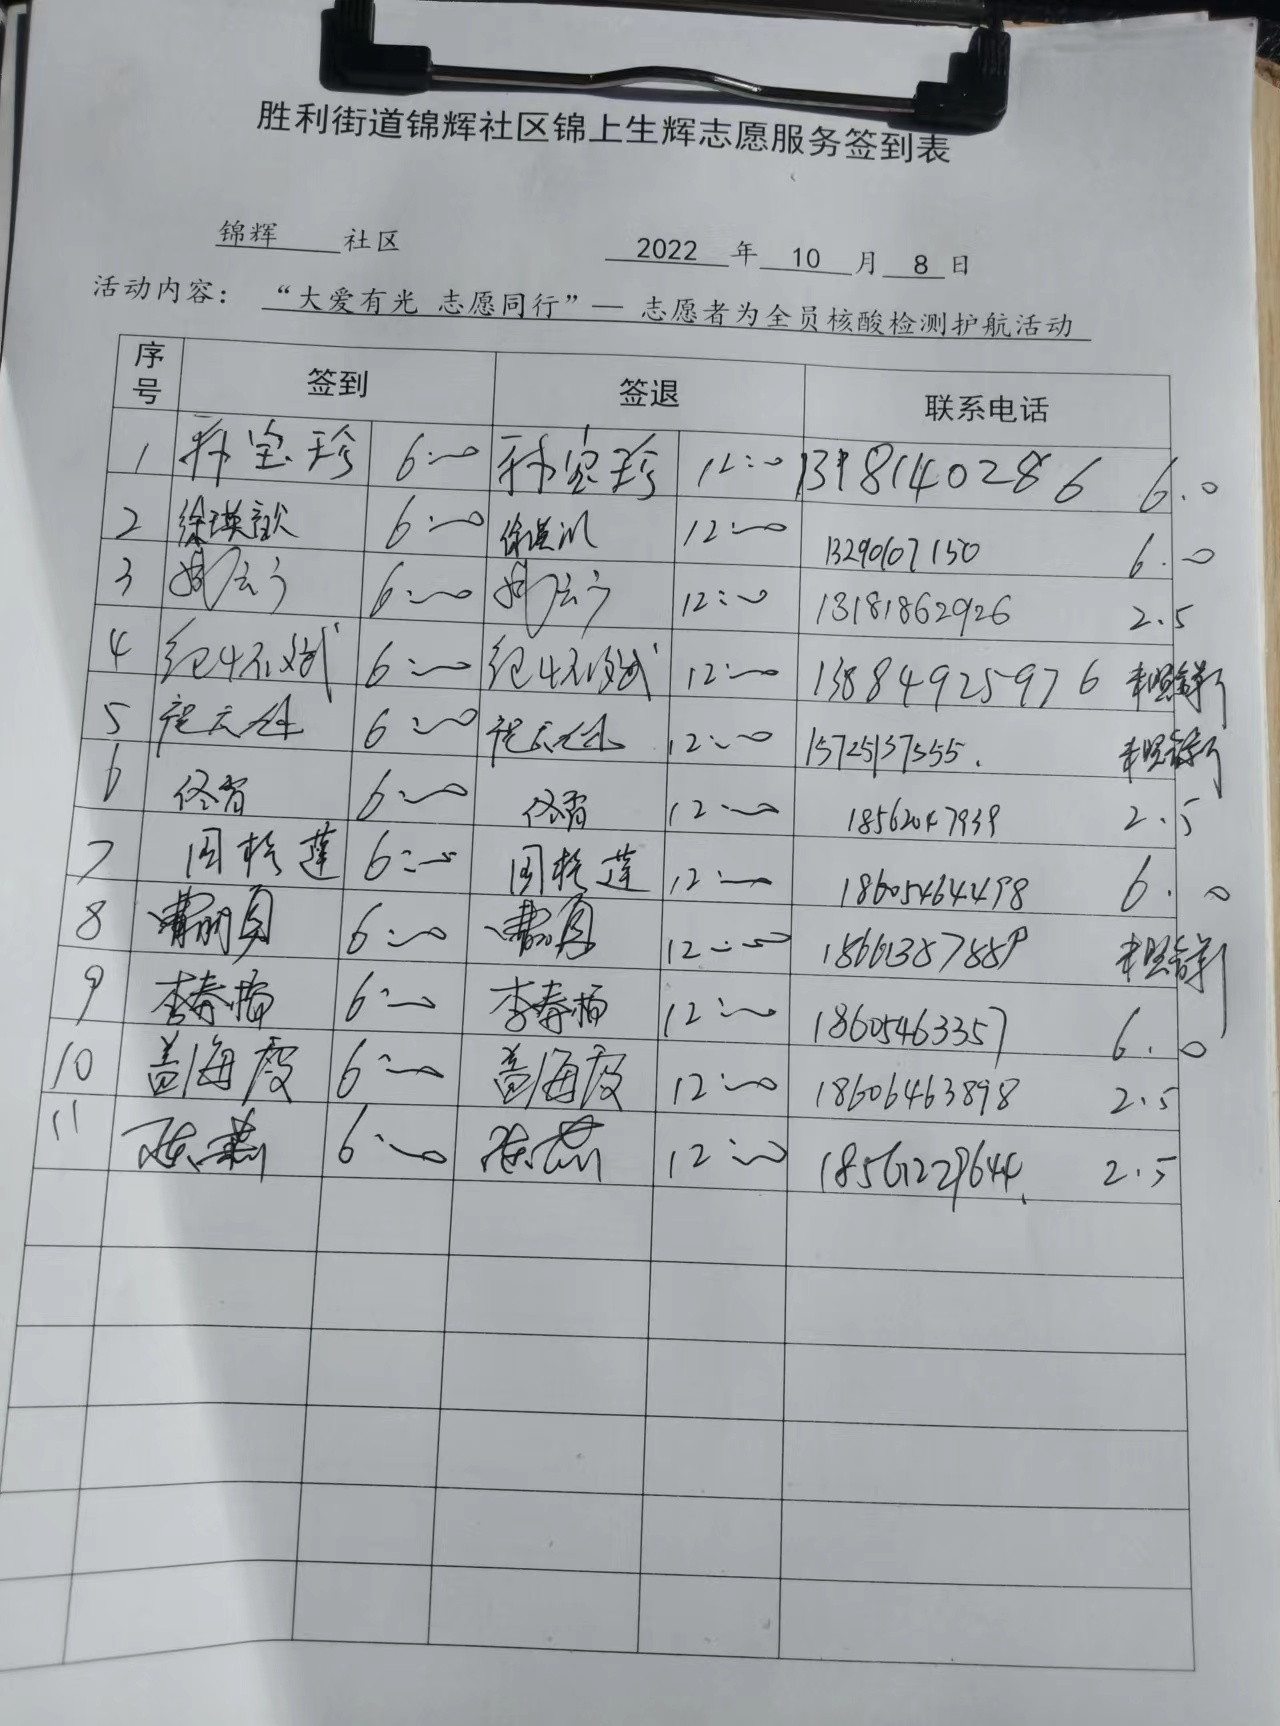 胜利街道锦辉社区锦上生辉志愿服务签到表
锦辉 社区 2022 年 10 月 8 日
活动内容： “大爱有光 志愿同行”— 志愿者为全员核酸检测护航活动
序号 签到 签退 联系电话
1 孙宝珍 6:00 孙宝珍 12:00 1318140286 6.0
2 徐瑛 6:00 徐瑛 12:00 13290607150 6.0
3 6:00 12:00 13181862926 2.5
4 6:00 12:00 13884925976
5 程云 6:00 程云 12:00 15725137555.
6 佟霄 6:00 佟霄 12:00 18562047939 2.5
7 周桂莲 6:00 周桂莲 12:00 18605464498 6.0
8 6:00 12:00 18661387889
9 李春梅 6:00 李春梅 12:00 18605463357 6.0
10 盖海霞 6:00 盖海霞 12:00 18606463898 2.5
11 陈燕 6:00 陈燕 12:00 18561229644. 2.5